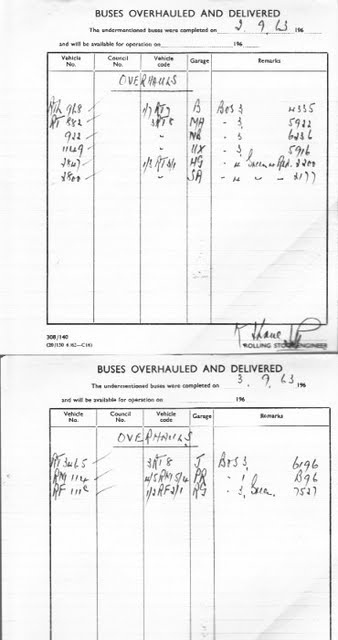 BUSES OVERHAULED AND DELIVERED
The undermentioned buses were completed on 2.9.63 196
and will be available for operation on 196
Vehicle No. Council No. Vehicle code Garage Remarks
OVERHAULS
968 B BOS 3 4335
RT 882 3RT8 3, 5922
922 " " 3, 6236
1149 " UX " 3, 5916
2847 HG 2200
2800 " SA " " " 2177
308/140
ROLLING STOCK ENGINEER
BUSES OVERHAULED AND DELIVERED
The undermentioned buses were completed on 3.9.63 196
and will be available for operation on 196
Vehicle No. Council No. Vehicle code Garage Remarks
OVERHAULS
RT 3465 3RT8 J BOS 3, 6196
RM 1124 4/5RM5/4 PR " 1 B96
RF 111 1/2RF2/1 " 3, 7527